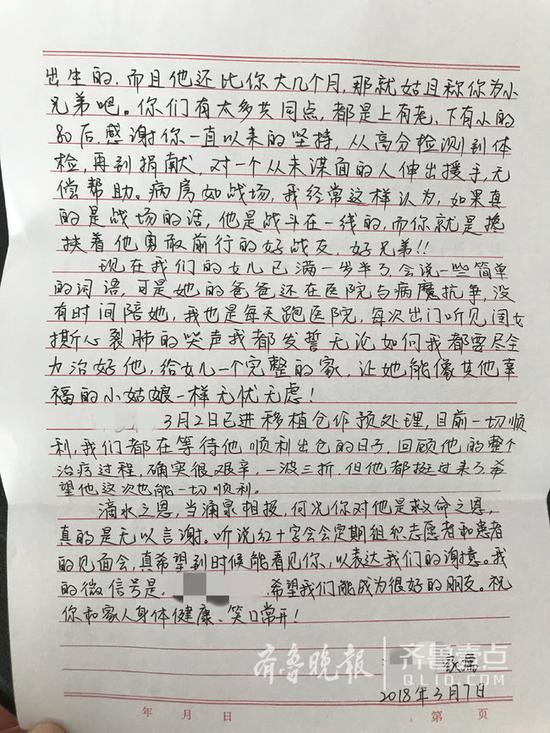 出生的,而且他还比你大几个月,那就姑且称你为小
兄弟吧。你们有太多共同点,都是上有老、下有小的
80后,感谢你一直以来的坚持,从高分检测到体
检,再到捐献,对一个从未谋面的人伸出援手,无
偿帮助。病房如战场,我经常这样认为,如果真
的是战场的话,他是战斗在一线的,而你就是搀
扶着他勇敢前行的好战友,好兄弟!!
现在我们的女儿已满一岁半了会说一些简单
的词语,可是她的爸爸还在医院与病魔抗争,没
有时间陪她,我也是每天跑医院,每次出门听见闺女
撕心裂肺的哭声我都发誓无论如何我都要尽全
力治好他,给女儿一个完整的家,让她能像其他幸
福的小姑娘一样无忧无虑!
3月2日已进移植仓作预处理,目前一切顺
利,我们都在等待他顺利出仓的日子,回顾他的整个
治疗过程,确实很艰辛,一波三折,但他都挺过来了希
望他这次也能一切顺利。
滴水之恩,当涌泉相报,何况你对他是救命之恩,
真的是无以言谢。听说红十字会会定期组织志愿者和患者
的见面会,真希望到时候能看见你,以表达我们的谢意。我
的微信号是, 希望我们能成为很好的朋友。祝
你和家人身体健康、笑口常开!
家属
2018年3月7日
齐鲁晚报 齐鲁壹点
QLID.COM
年 月 日 第 页